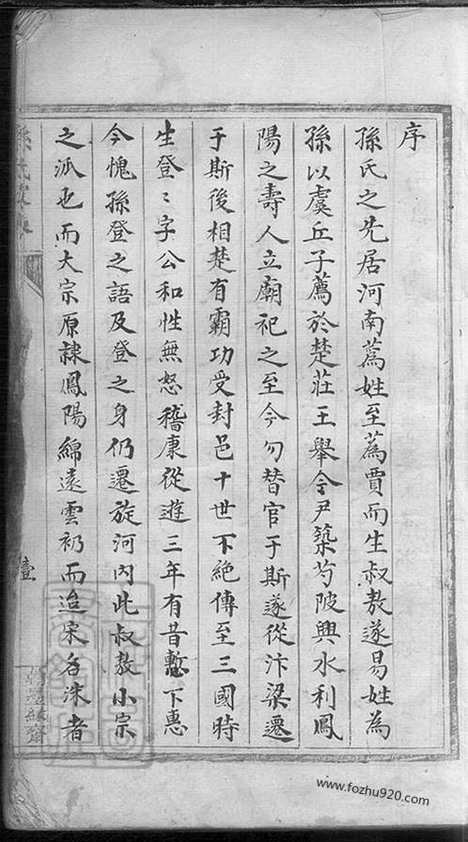 序
孫氏之先居河南蒍姓至蒍賈而生叔敖遂易姓為
孫以虞丘子薦於楚莊王舉令尹築芍陂興水利鳳
陽之壽人立廟祀之至今勿替官于斯遂從汴梁遷
于斯後相楚有霸功受封邑十世不絕傳至三國時
生登〻字公和性無怒嵇康從遊三年有昔慙下惠
今愧孫登之語及登之身仍遷旋河內此叔敖小宗
之派也而大宗原隸鳳陽綿遠雲礽而迨宋名洙者
壹
www.fozhu920.com